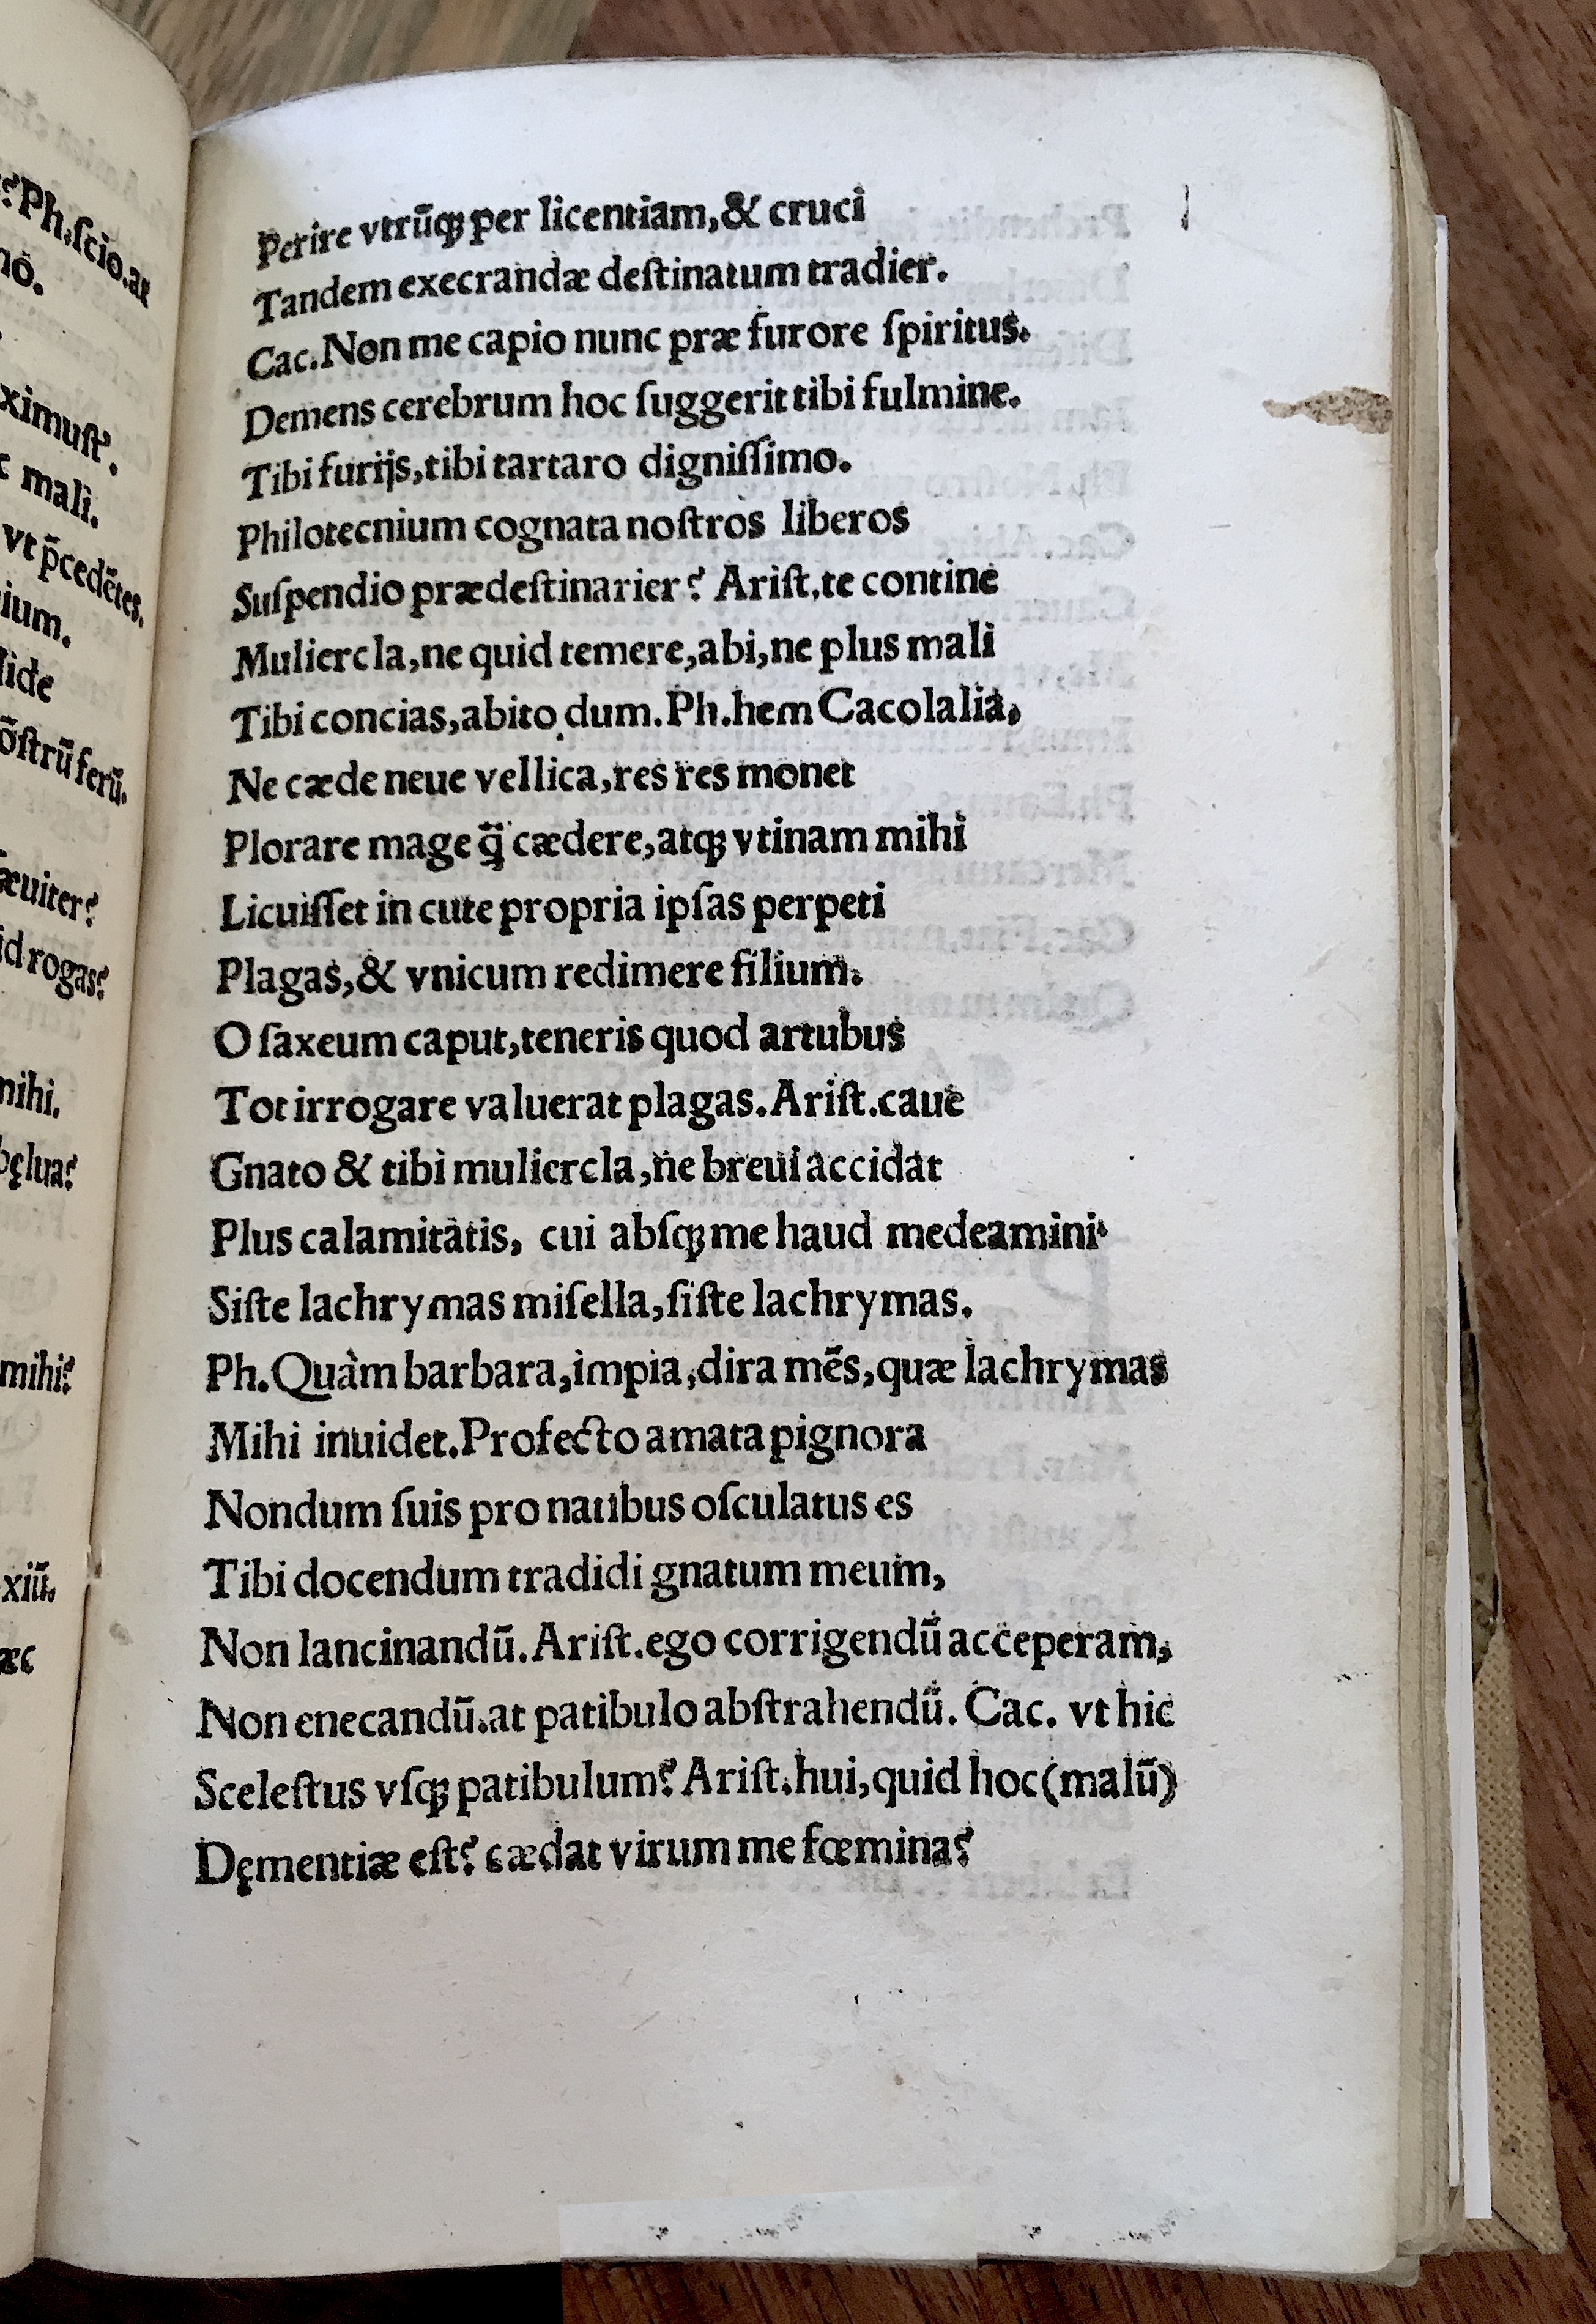 Perire vtrūqꝫ per licentiam,& cruci
Tandem execrandæ deſtinatum tradier.
Cac.Non me capio nunc præ furore ſpiritus.
Demens cerebrum hoc ſuggerit tibi fulmine.
Tibi furijs,tibi tartaro digniſſimo.
Philotecnium cognata noſtros liberos
Suſpendio prædeſtinarier? Ariſt.te contine
Muliercla,ne quid temere,abi,ne plus mali
Tibi concias,abito dum.Ph.hem Cacolalia,
Ne cæde neue vellica,res res monet
Plorare mage q̄ cædere,atqꝫ vtinam mihi
Licuiſſet in cute propria ipſas perpeti
Plagas,& vnicum redimere filium.
O ſaxeum caput,teneris quod artubus
Tot irrogare valuerat plagas.Ariſt.caue
Gnato & tibi muliercla,ne breui accidat
Plus calamitatis, cui abſqꝫ me haud medeamini.
Siſte lachrymas miſella,ſiſte lachrymas.
Ph.Quàm barbara,impia,dira mēs,quæ lachrymas
Mihi inuidet.Profecto amata pignora
Nondum ſuis pro natibus oſculatus es
Tibi docendum tradidi gnatum meum,
Non lancinandū.Ariſt.ego corrigendū acceperam,
Non enecandū.at patibulo abſtrahendū. Cac. vt hic
Sceleſtus vſqꝫ patibulum? Ariſt.hui,quid hoc(malū)
Dęmentiæ eſt? cædat virum me fœmina?
?Ph.ſcio.at
ximuſt'.
mali.
vt p̄cedētes.
ium.
lide
ōſtrū ferū.
æuiter?
id rogas?
mihi.
bęlua?
mihi?
xiū.
æc